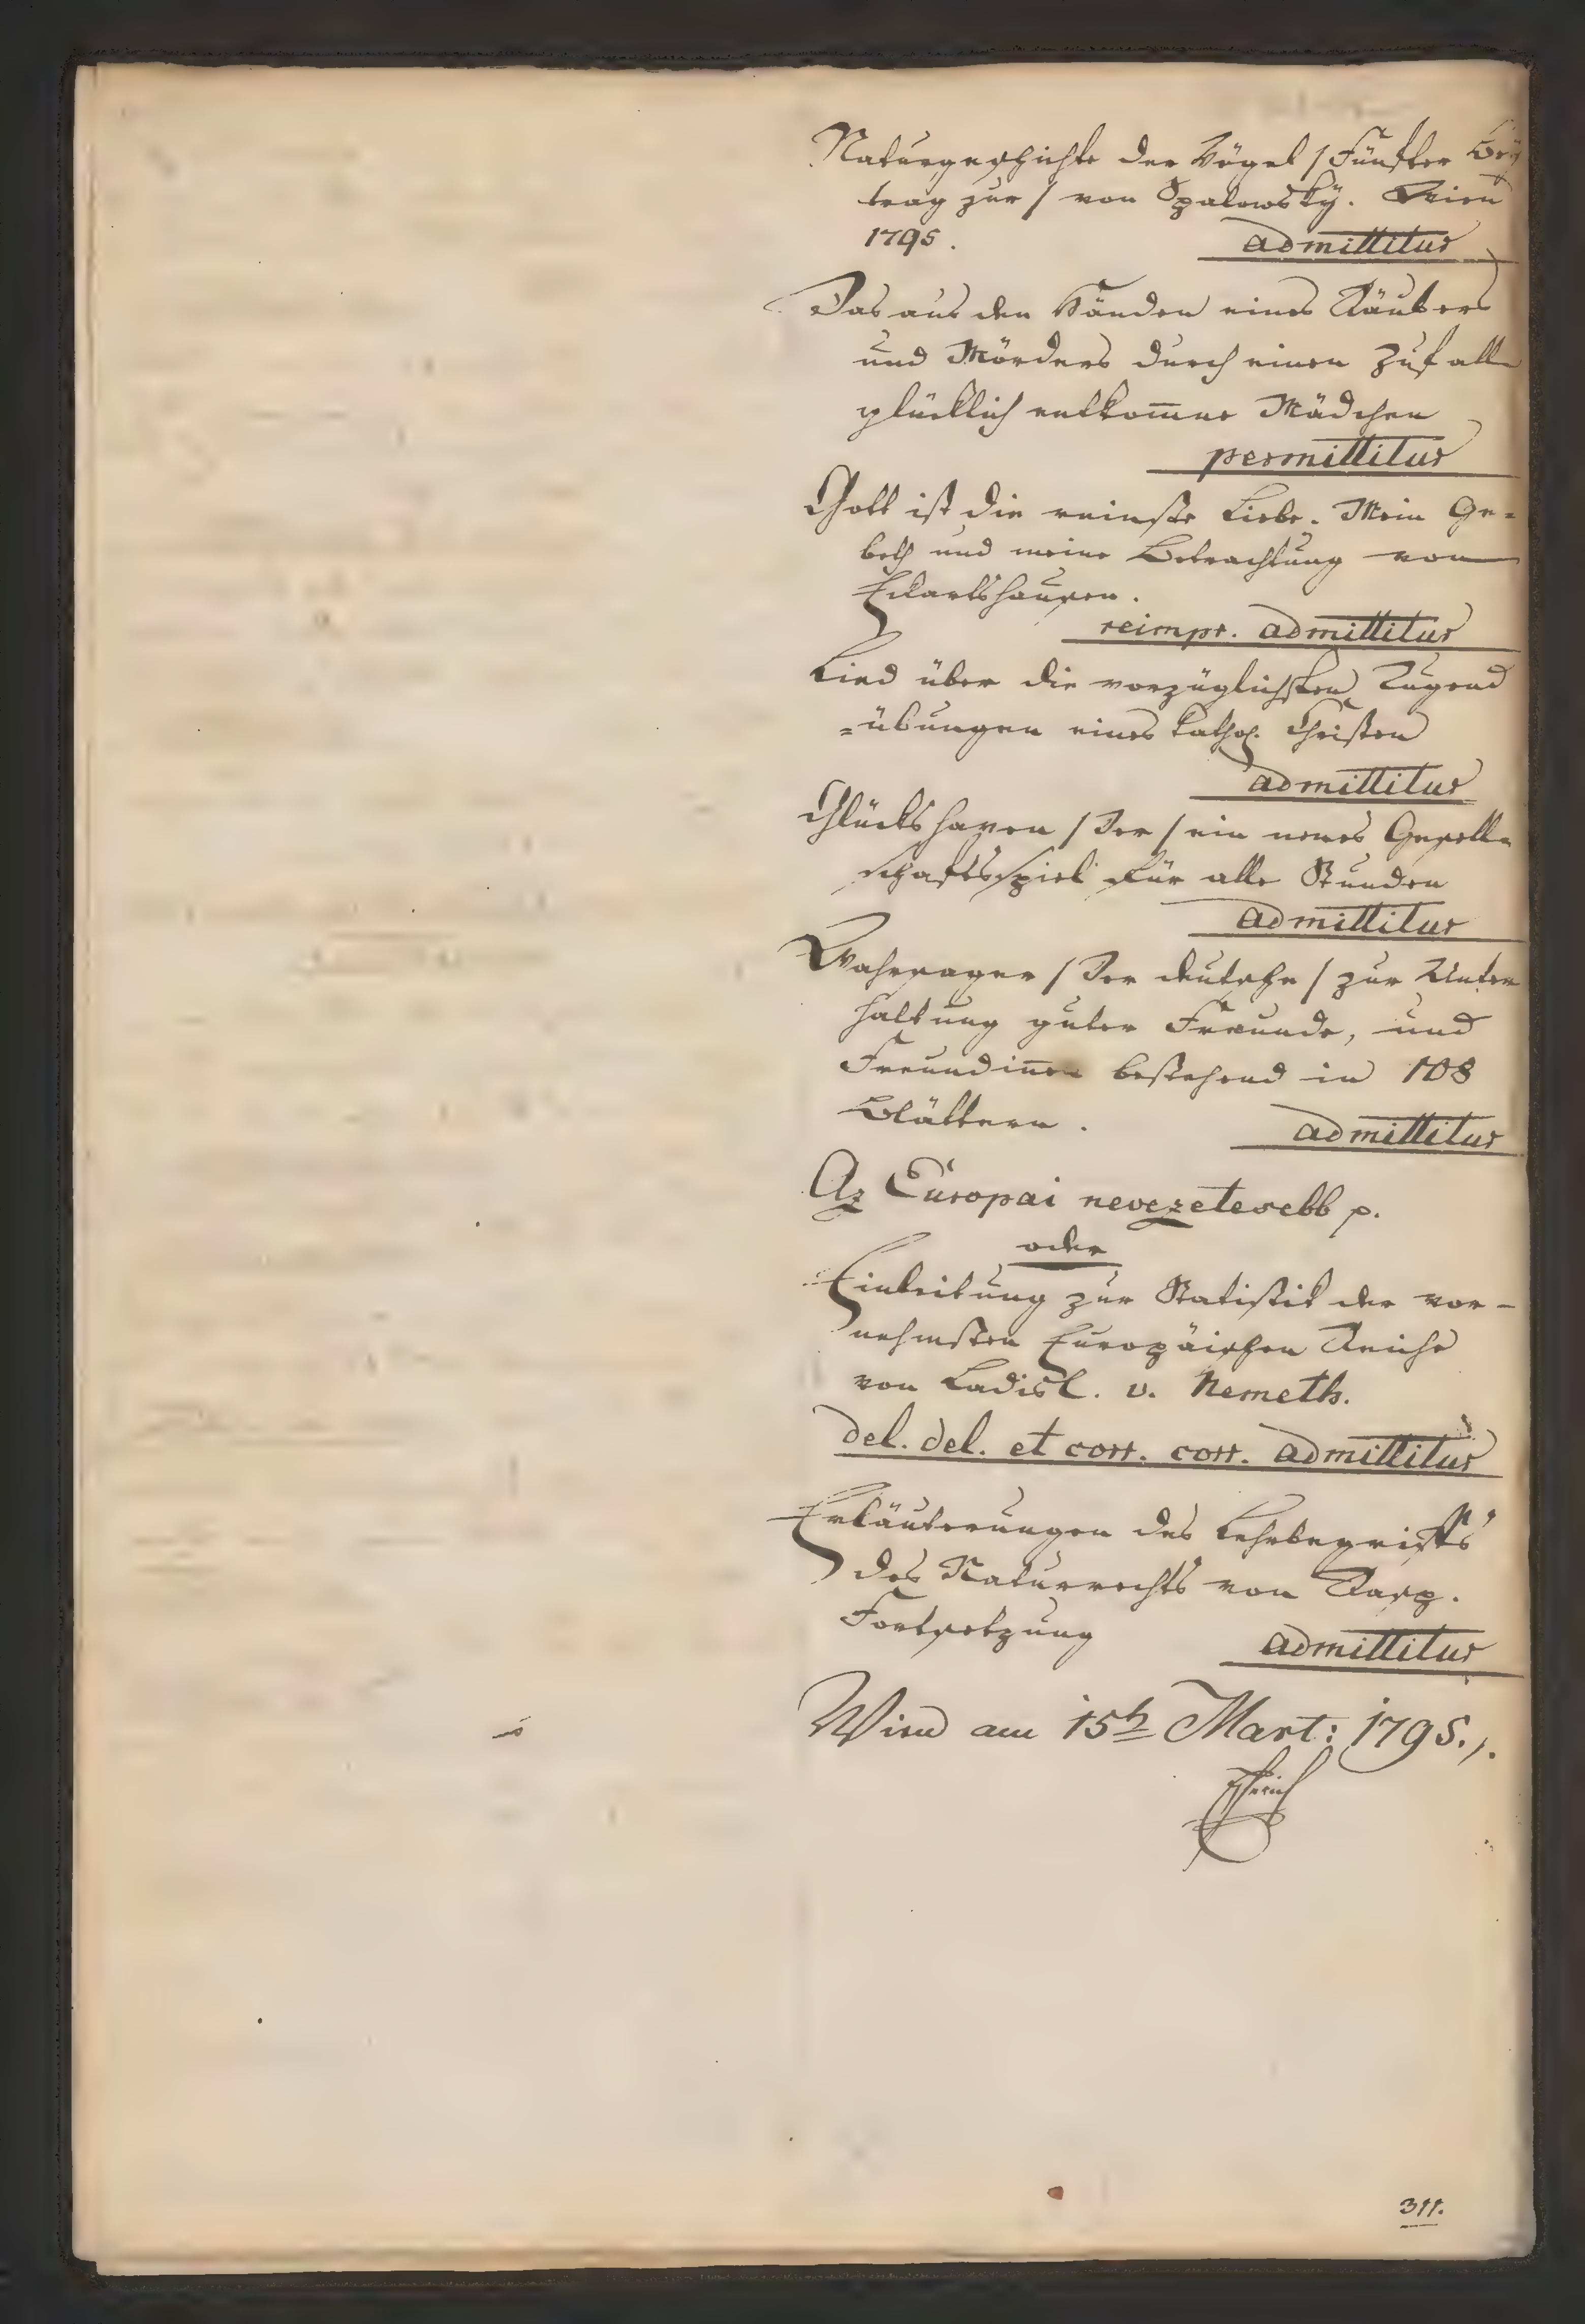 Naturgeschichte der Vögel / Fünfter Bey
trag zur / von Spalowsky. Wien
1795. admittitur
Das aus den Händen eines Räubers
und Mörders durch einen Zufall
glücklich entkom̅ne Mädchen
permittitur
Gott ist die reinste Liebe. Mein Ge=
beth und meine Betrachtung von
Eckartshausen.
reimpr. admittitur
Lied über die vorzüglichsten Tugend
=übungen eines kathol. Christen
admittitur
Glückshaven / Der / ein neues Gesell=
schaftsspiel für alle Stunden
admittitur
Wahrsager / Der deutsche / zur Unter
haltung guter Freunde, und
Freundin̅en bestehend in 108
Blättern. admittitur
Az Európai nevezetesebb p.
oder
Einleitung zur Statistik der vor-
nehmsten Europäischen Reiche
von Ladisl. v. Nemeth.
del. del. et corr. corr. admittitur
Erläuterungen des Lehrbegriffs
des Naturrechts von
Fortsetzung admittitur
Wien am 15t Mart: 1795.
311.